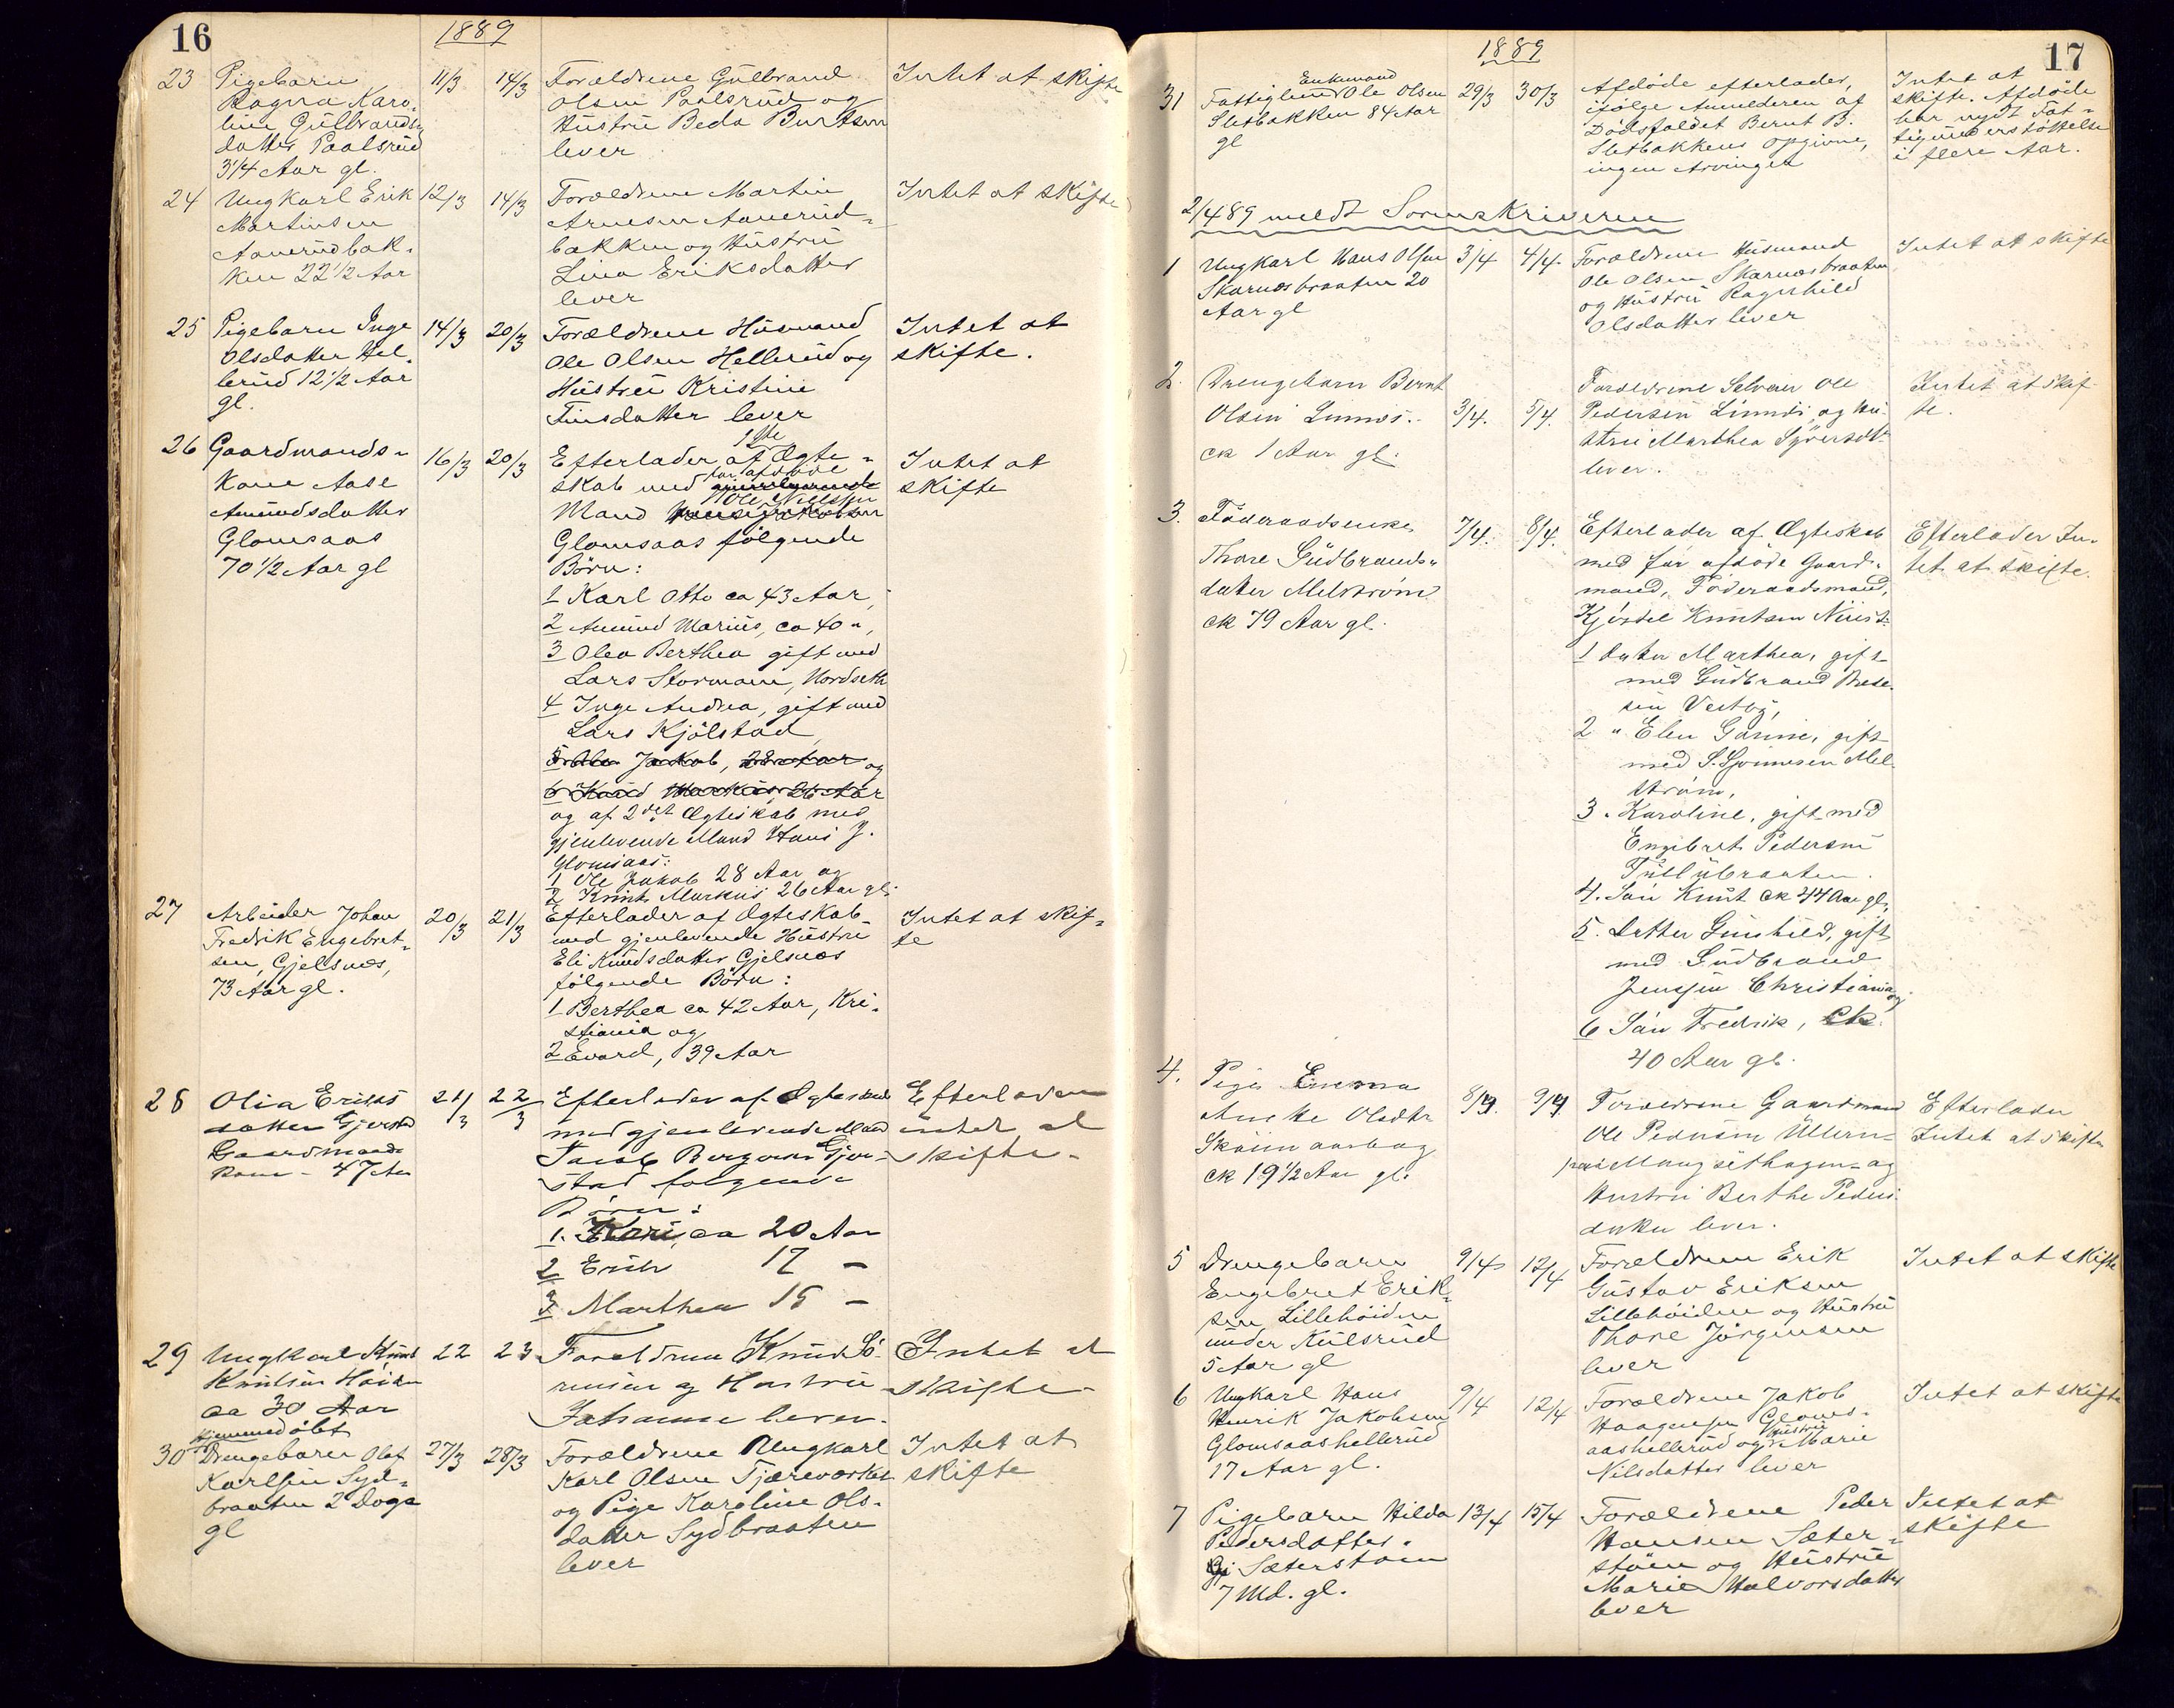 16
1889
23 Pigebarn 11/3 14/3 Forældrene Gulbrand Intet at skifte
Ragna Karo- Olsen Paalsrud og
line Gulbrands- Hustru Beda Burtsen
datter Paalsrud lever
3 1/4 Aar gl.
24 Ungkarl Erik 12/3 14/3 Forældrene Martin Intet at skifte
Martinsen Arnesen Aanerud-
Aanerudbak- bakken og Hustru
ken 22 1/2 Aar Lina Eriksdatter
lever
25 Pigebarn Inga 14/3 20/3 Forældrene Husmand Intet at
Olsdatter Hel- Ole Olsen Hellerud og skifte.
lerud 12 1/2 Aar Hustru Kristine
gl. Finsdatter lever
26 Gaardmands- 16/3 20/3 Efterlader af 1ste Ægte- Intet at
kone Aase skab med før afdøde gjenlevende skifte
Amundsdatter Mand Ole Nielsen Hans Jakobsen
Glomsaas Glomsaas følgende
70 1/2 Aar gl Børn:
1 Karl Otto ca 43 Aar,
2 Amund Marius, ca 40 ",
3 Olea Berthea gift med
Lars Stormoen, Nordseth
4 Inge Andrea, gift med
Lars Kjølstad,
5 Ole Jakob, 28 Aar og
6 Knud Markus, 26 Aar
og af 2det Ægteskab med
gjenlevende Mand Hans J.
Glomsaas:
1 Ole Jakob 28 Aar og
2 Knut Markus 26 Aar gl.
27 Arbeider Johan 20/3 21/3 Efterlader af Ægteskab Intet at skif-
Fredrik Engebret- med gjenlevende Hustru te
sen, Gjelsnæs, Eli Knudsdatter Gjelsnæs
73 Aar gl. følgende Børn:
1 Berthea ca 42 Aar, Kri-
stiania og
2 Evard, 39 Aar
28 Olia Eriks 21/3 22/3 Efterlader af Ægteskab Efterlader
datter Gjerstad med gjenlevende Mand intet at
Gaardmands Jacob Borgersen Gjer- skifte.
kone - 47 Aar stad følgende
Børn:
1. Kari, ca 20 Aar
2 Erik 17 —
3 Marthea 15 —
29 Ungkarl Knud 22 23 Foreldrene Knud Sö- Intet at
Knudsen Haien rensen og Hustru skifte
ca 30 Aar Johanne lever.
30 Hjemmedøbt Drengebarn Olaf 27/3 28/3 Forældrene Ungkarl Intet at
Karlsen Syd- Karl Olsen Tjæreværket skifte
braaten 2 Dage og Pige Karoline Ols-
gl datter Sydbraaten
lever
17
1889
31 Fattiglem Enkemand Ole Olsen 29/3 30/3 Afdøde efterlader, Intet at
Sletbakken 84 Aar ifølge Anmelderen af skifte. Afdøde
gl Dødsfaldet Bernt B. har nydt Fat-
Sletbakkens Opgivne, tigunderstøttelse
ingen Arvinger i flere Aar.
2/4 89 meldt Sorenskriveren
1 Ungkarl Hans Olsen 3/4 4/4. Forældrene Husmand Intet at skifte
Skarnæsbraaten 20 Ole Olsen Skarnæsbraaten
Aar gl og Hustru Ragnhild
Olsdatter lever
2. Drengebarn Bernt Foreldrene Selveier Ole Intet at skif-
Olsen Linnæs. 3/4. 5/4. Pedersen Linnæs og Hu- te.
ck 1 Aar gl. stru Marthea Syversdt.
lever.
3. Föderaadsenke 7/4. 8/4. Efterlader af Ægteskab Efterlader In-
Thore Gudbrands- med før afdøde Gaard- tet at skifte.
datter Melstrøm mand, Föderaadsmand,
ck 79 Aar gl. Kjøstel Knutsen
1 Datter Marthea, gift
med Gudbrand
sen Vestby,
2 " Elen Gunine, gift
med S. Mel-
strøm,
3. Karoline, gift med
Engebret Pedersen
4. Sön Knut ck 44 Aar gl.
5. Datter Gunhild, gift
med Gudbrand
Jensen Christiania og
6 Sön Fredrik, Ck.
40 Aar gl.
4. Pige Emma 8/4. 9/4 Foreldrene Gaardmand Efterlader
Olsdtr Ole Pedersen Ullern- Intet at skifte
Skøienaarbog paa Mangsethagen og
ck 19 1/2 Aar gl. Hustru Berthe Peders
datter lever.
5 Drengebarn 9/4 12/4 Forældrene Erik Intet at skifte
Engebret Erik- Gustav Eriksen
sen Lillehöiden Lillehöiden og Hustru
under Kulsrud Thore Jörgensen
5 Aar gl lever
6 Ungkarl Hans 9/4 12/4 Forældrene Jakob Intet at skifte
Henrik Jakobsen Haagensen Gloms-
Glomsaashellerud aashellerud og Hustru Marie
17 Aar gl. Nilsdatter lever
7 Pigebarn Hilda 13/4 15/4 Forældrene Peder Intet at
Pedersdatter Hansen Sæter- skifte
Sæterstøen støen og Hustru
7 Md. gl. Marie Halvorsdatter
lever